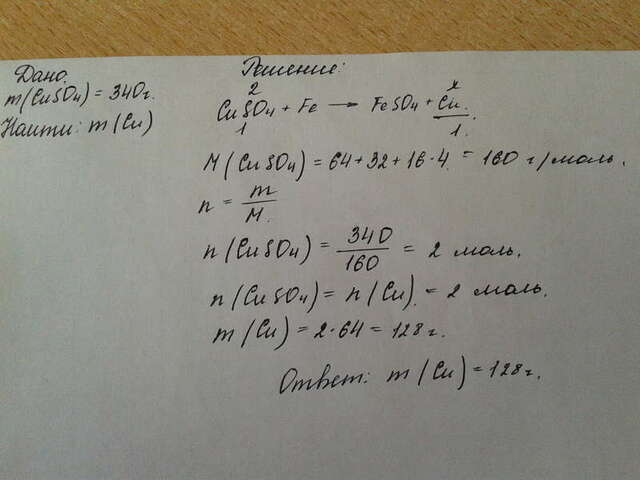 Дано:
m(CuSO4) = 340г.
Найти: m(Cu)
Решение:
2 x
CuSO4 + Fe → FeSO4 + Cu.
1 1.
M(CuSO4) = 64+32+16·4 = 160 г/моль.
n = m/M.
n(CuSO4) = 340/160 = 2 моль.
n(CuSO4) = n(Cu) = 2 моль.
m(Cu) = 2·64 = 128г.
Ответ: m(Cu) = 128г.